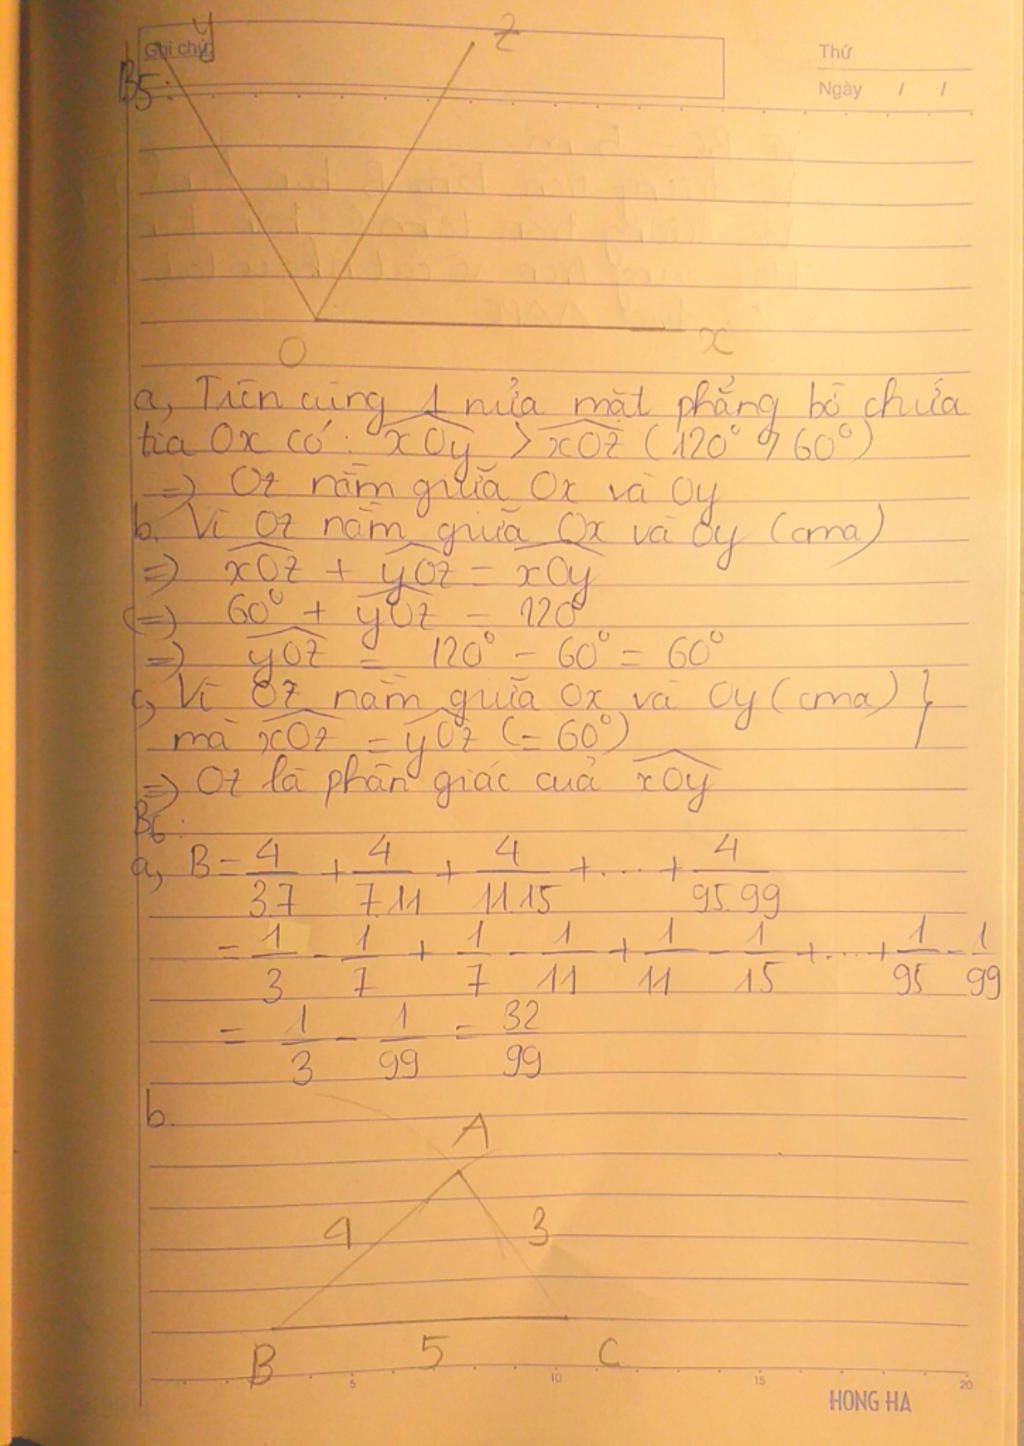 y
z
Ghi chú
Thứ
B5:
Ngày / /
O
x
a, Trên cùng 1 nửa mặt phẳng bờ chứa
tia Ox có: xOy > xOz (120° > 60°)
=> Oz nằm giữa Ox và Oy
b. Vì Oz nằm giữa Ox và Oy (cma)
=> xOz + yOz = xOy
(=) 60° + yOz = 120°
=> yOz = 120° - 60° = 60°
c, Vì Oz nằm giữa Ox và Oy (cma) }
mà xOz = yOz (= 60°)
=> Oz là phân giác của xOy
B6:
a, B = 4/3.7 + 4/7.11 + 4/11.15 + ... + 4/95.99
= 1/3 - 1/7 + 1/7 - 1/11 + 1/11 - 1/15 + ... + 1/95 - 1/99
= 1/3 - 1/99 = 32/99
b.
A
4 3
B 5 C
5 10 15 20
HONG HA